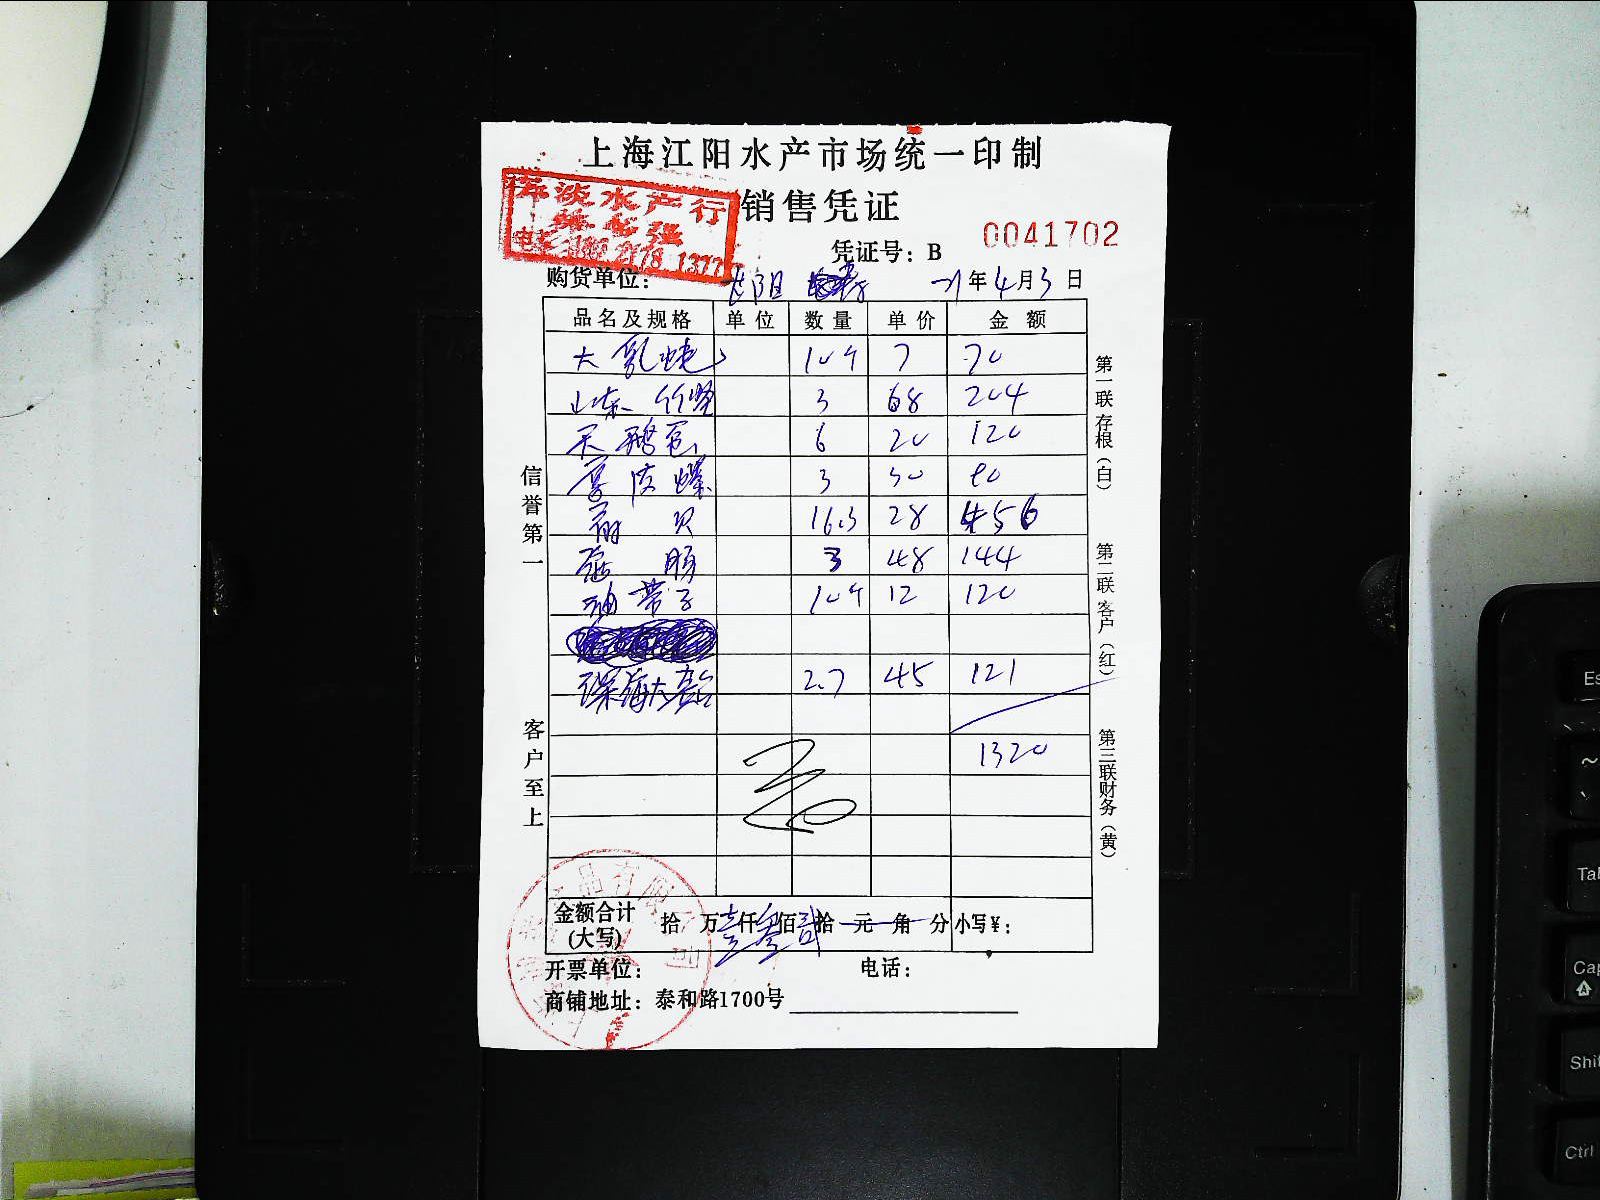 上海江阳水产市场统一印制
销售凭证
海淡水产行
凭证号：B 0041702
1377
购货单位： 21年4月3日
品名及规格 单位 数量 单价 金额
大乳蛏 10斤 7 70
山东竹蛏 3 68 204
天鹅蛋 6 20 120
香波螺 3 30 90
扇贝 16.3 28 456
3 48 144
油带子 10斤 12 120
深海大 2.7 45 121
1320
金额合计(大写) 拾 万壹仟叁佰贰拾 元 角 分 小写¥：
开票单位： 电话：
商铺地址：泰和路1700号
信誉第一
客户至上
第一联 存根（白）
第二联 客户（红）
第三联 财务（黄）
Tab
Ctrl